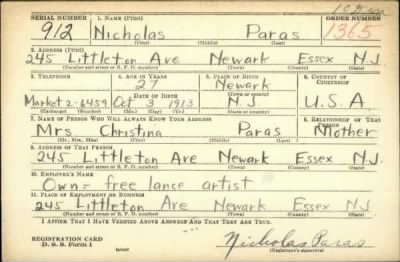 SERIAL NUMBER 1. NAME (Print) ORDER NUMBER
912 Nicholas Paras 1365
(First) (Middle) (Last)
2. ADDRESS (Print)
245 Littleton Ave Newark Essex N.J.
(Number and street or R. F. D. number) (Town) (County) (State)
3. TELEPHONE 4. AGE IN YEARS 5. PLACE OF BIRTH 6. COUNTRY OF CITIZENSHIP
27 Newark
DATE OF BIRTH (Town or county)
Market 2-6459 Oct 3 1913 N.J U.S.A
(Exchange) (Number) (Mo.) (Day) (Yr.) (State or country)
7. NAME OF PERSON WHO WILL ALWAYS KNOW YOUR ADDRESS 8. RELATIONSHIP OF THAT PERSON
Mrs Christina Paras Mother
(Mr., Mrs., Miss) (First) (Middle) (Last)
9. ADDRESS OF THAT PERSON
245 Littleton Ave Newark Essex N.J.
(Number and street or R. F. D. number) (Town) (County) (State)
10. EMPLOYER'S NAME
Own = free lance artist
11. PLACE OF EMPLOYMENT OR BUSINESS
245 Littleton Ave Newark Essex N.J
(Number and street or R. F. D. number) (Town) (County) (State)
I AFFIRM THAT I HAVE VERIFIED ABOVE ANSWERS AND THAT THEY ARE TRUE.
REGISTRATION CARD
D. S. S. Form 1 (over) Nicholas Paras
(Registrant's signature)